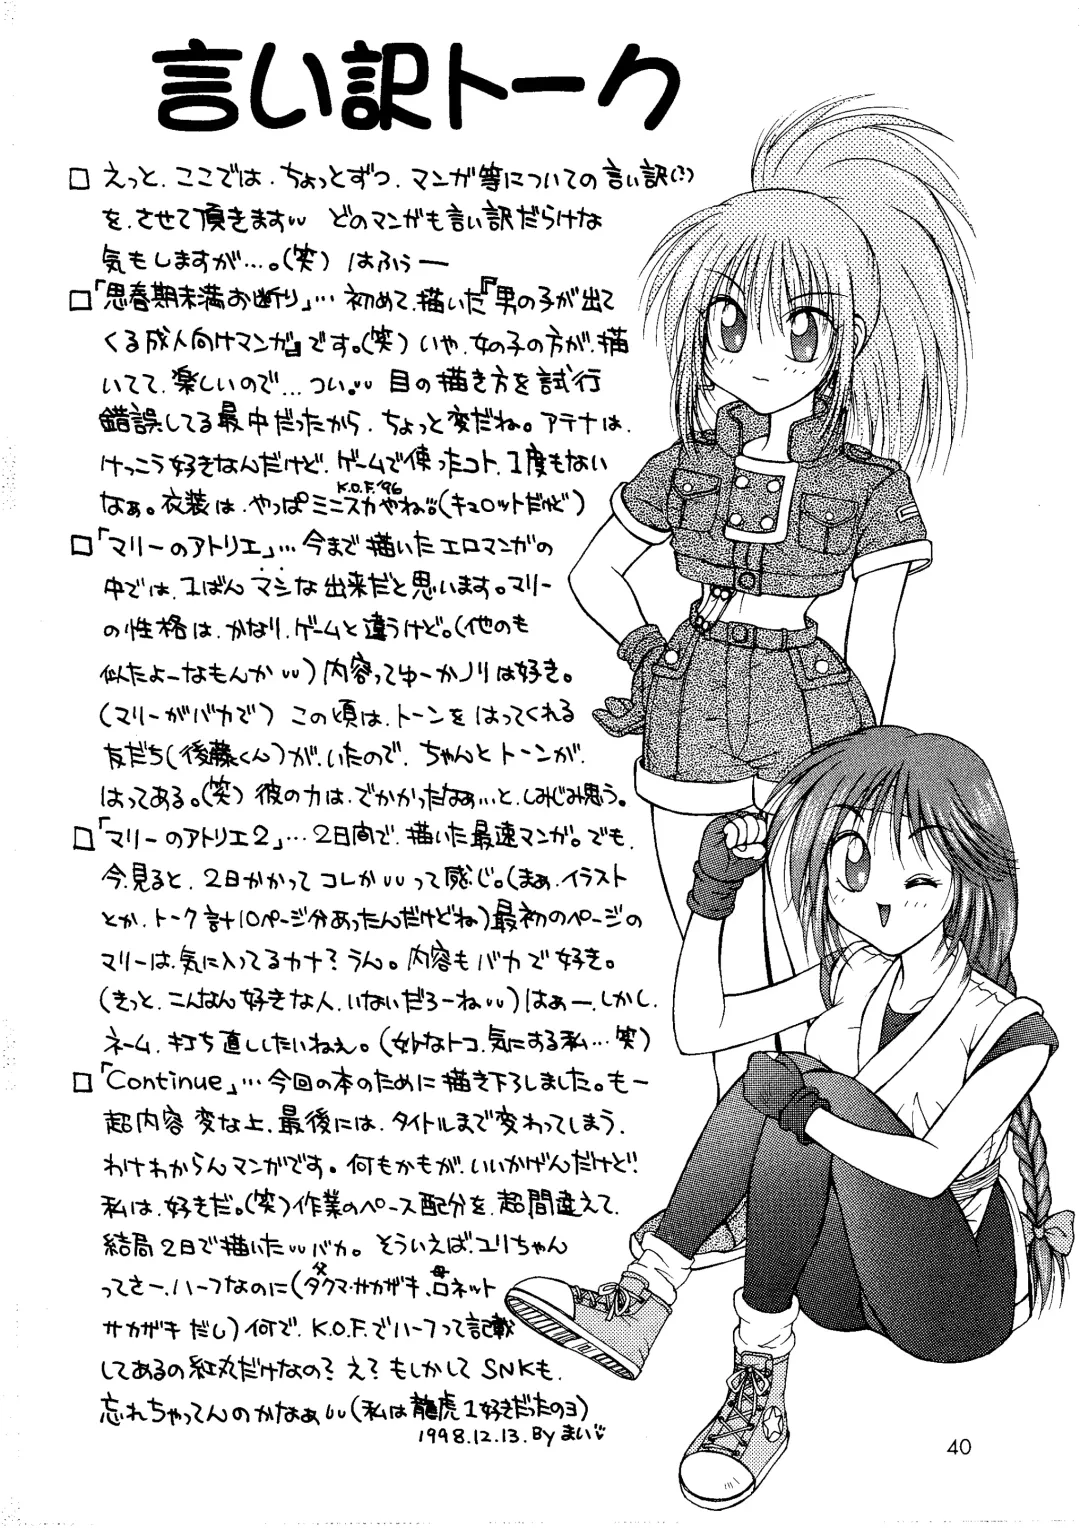 言い訳トーク
□ えっと、ここでは、ちょっとずつ、マンガ等についての言い訳(?)
を、させて頂きます㆙ どのマンガも言い訳だらけな
気もしますが…。(笑) はふぅー
□「思春期未満お断り」… 初めて、描いた『男の子が出て
くる成人向けマンガ』です。(笑) いや、女の子の方が、描
いてて、楽しいので…つい。 目の描き方を試行
錯誤してる最中だったから、ちょっと変だね。アテナは、
けっこう好きなんだけど、ゲームで使ったコト、1度もない
なぁ。衣装は、やっぱ K.O.F.'96 ミニスカやね(キュロットだけど)
□「マリーのアトリエ」… 今まで描いたエロマンガの
中では、1ばんマシな出来だと思います。マリー
の性格は、かなり、ゲームと違うけど。(他のも
似たよーなもんか)内容ってゆーかノリは好き。
(マリーがバカで) この頃は、トーンをはってくれる
友だち(後藤くん)が、いたので、ちゃんとトーンが、
はってある。(笑) 彼の力は、でかかったなぁ…と、しみじみ思う。
□「マリーのアトリエ2」… 2日間で、描いた最速マンガ。でも、
今、見ると、2日かかってコレかって感じ。(まぁ、イラスト
とか、トーク計10ページ分あったんだけどね)最初のページの
マリーは、気に入ってるカナ?うん。内容もバカで好き。
(きっと、こんなん好きな人、いないだろーね)はぁー、しかし、
ネーム、打ち直ししたいねぇ。(妙なトコ、気にする私…笑)
□「Continue」… 今回の本のために描き下ろしました。もー
超内容変な上、最後には、タイトルまで変わってしまう、
わけわからんマンガです。何もかもが、いいかげんだけど!
私は、好きだ。(笑)作業のペース配分を、超間違えて、
結局2日で描いた バカ。そういえば、ユリちゃん
ってさー、ハーフなのに(父 タクマ・サカザキ、母 ロネット
サカザキ だし)何で、K.O.F.でハーフって記載
してあるの紅丸だけなの?え?もしかして SNKも、
忘れちゃってんのかなぁ(私は龍虎1好きだったのヨ)
1998.12.13. By まい
40